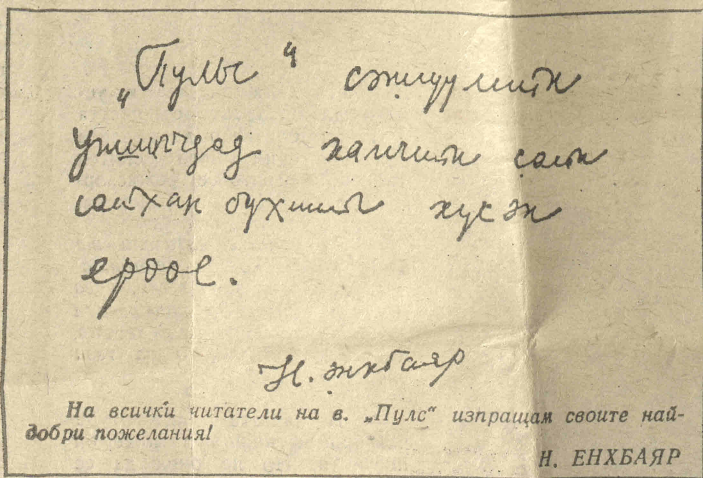 „Пульс“ сэтгүүлийн
уншигчдад хамгийн сайн
сайхан бүхнийг хүсэн
ерөөе.
Н. Энхбаяр
На всички читатели на в. „Пулс“ изпращам своите най-
добри пожелания!
Н. ЕНХБАЯР